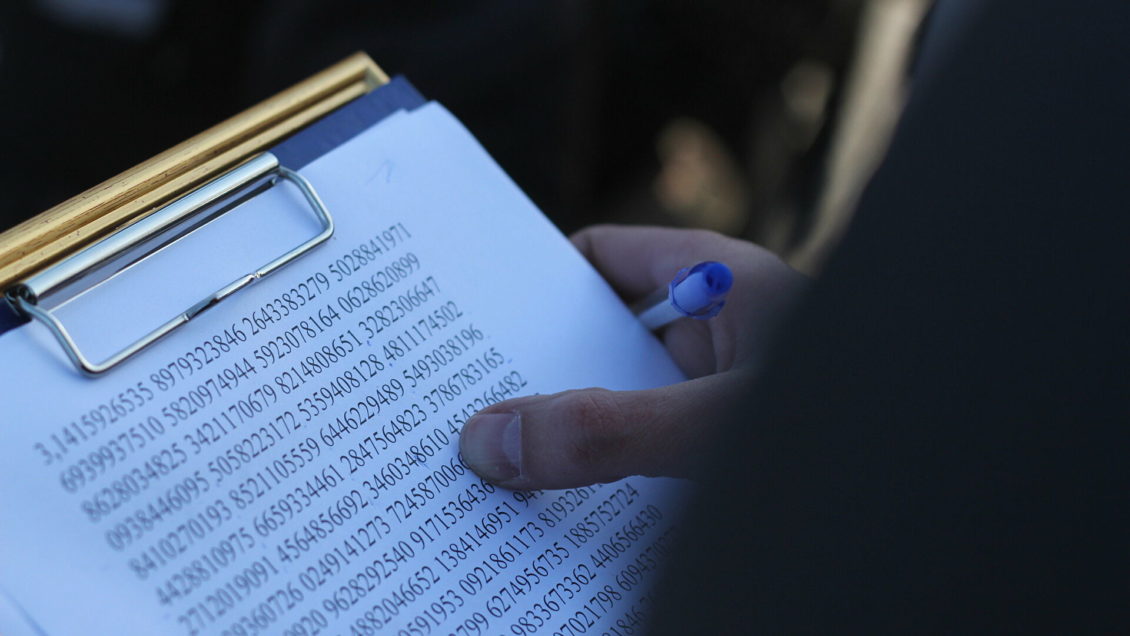 3,1415926535 8979323846 2643383279 5028841971
6939937510 5820974944 5923078164 0628620899
8628034825 3421170679 8214808651 3282306647
0938446095 5058223172 5359408128 4811174502
8410270193 8521105559 6446229489 5493038196
4428810975 6659334461 2847564823 3786783165
2712019091 4564856692 3460348610 4543266482
9360726 0249141273 724587006
0920 9628292540 9171536436
4882046652 1384146951 94
591953 0921861173 8193261
799 6274956735 1885752724
9833673362 4406566430
97021798 609437